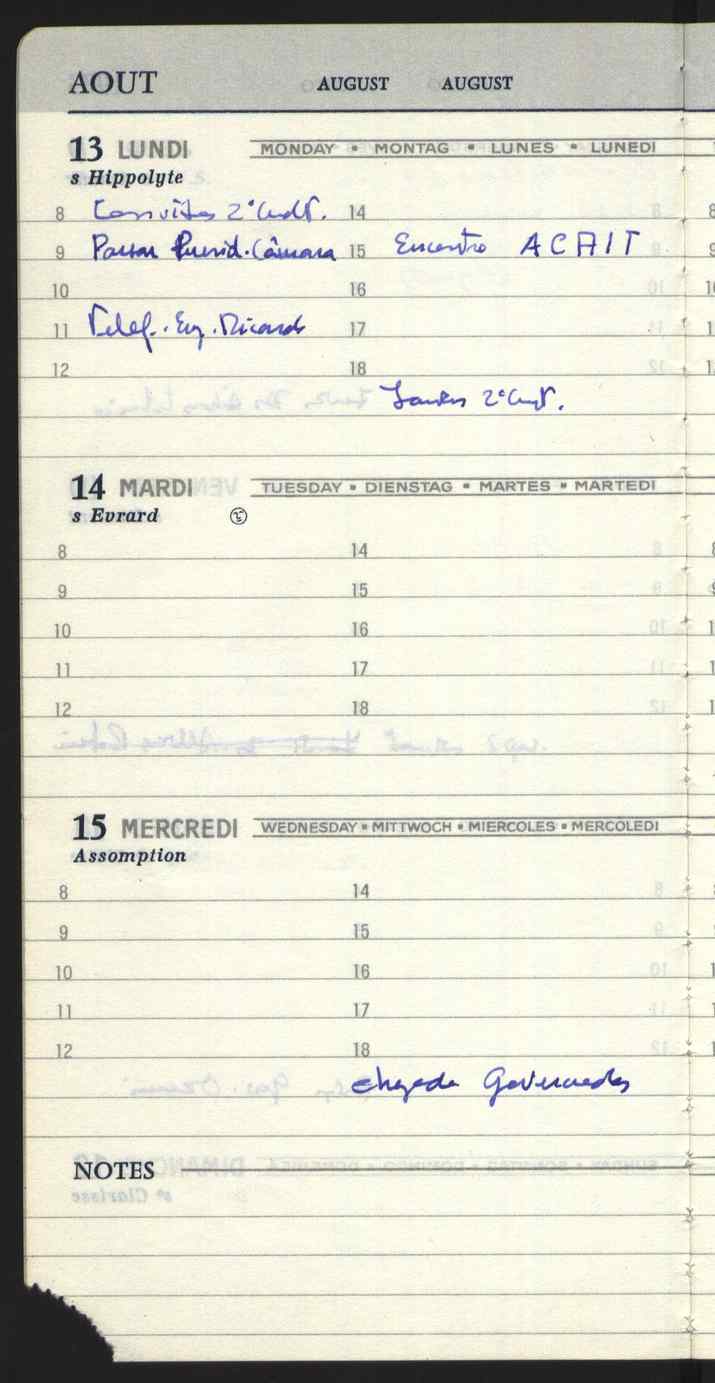 AOUT AUGUST AUGUST
13 LUNDI MONDAY • MONTAG • LUNES • LUNEDI
s Hippolyte
8 Convites 2° 14
9 Passar Presid. Câmara 15 Encontro ACAIT
10 16
11 Telef. Eng. Ricardo 17
12 18
2°
14 MARDI TUESDAY • DIENSTAG • MARTES • MARTEDI
s Evrard
8 14
9 15
10 16
11 17
12 18
15 MERCREDI WEDNESDAY • MITTWOCH • MIERCOLES • MERCOLEDI
Assomption
8 14
9 15
10 16
11 17
12 18
chegada Governador
NOTES